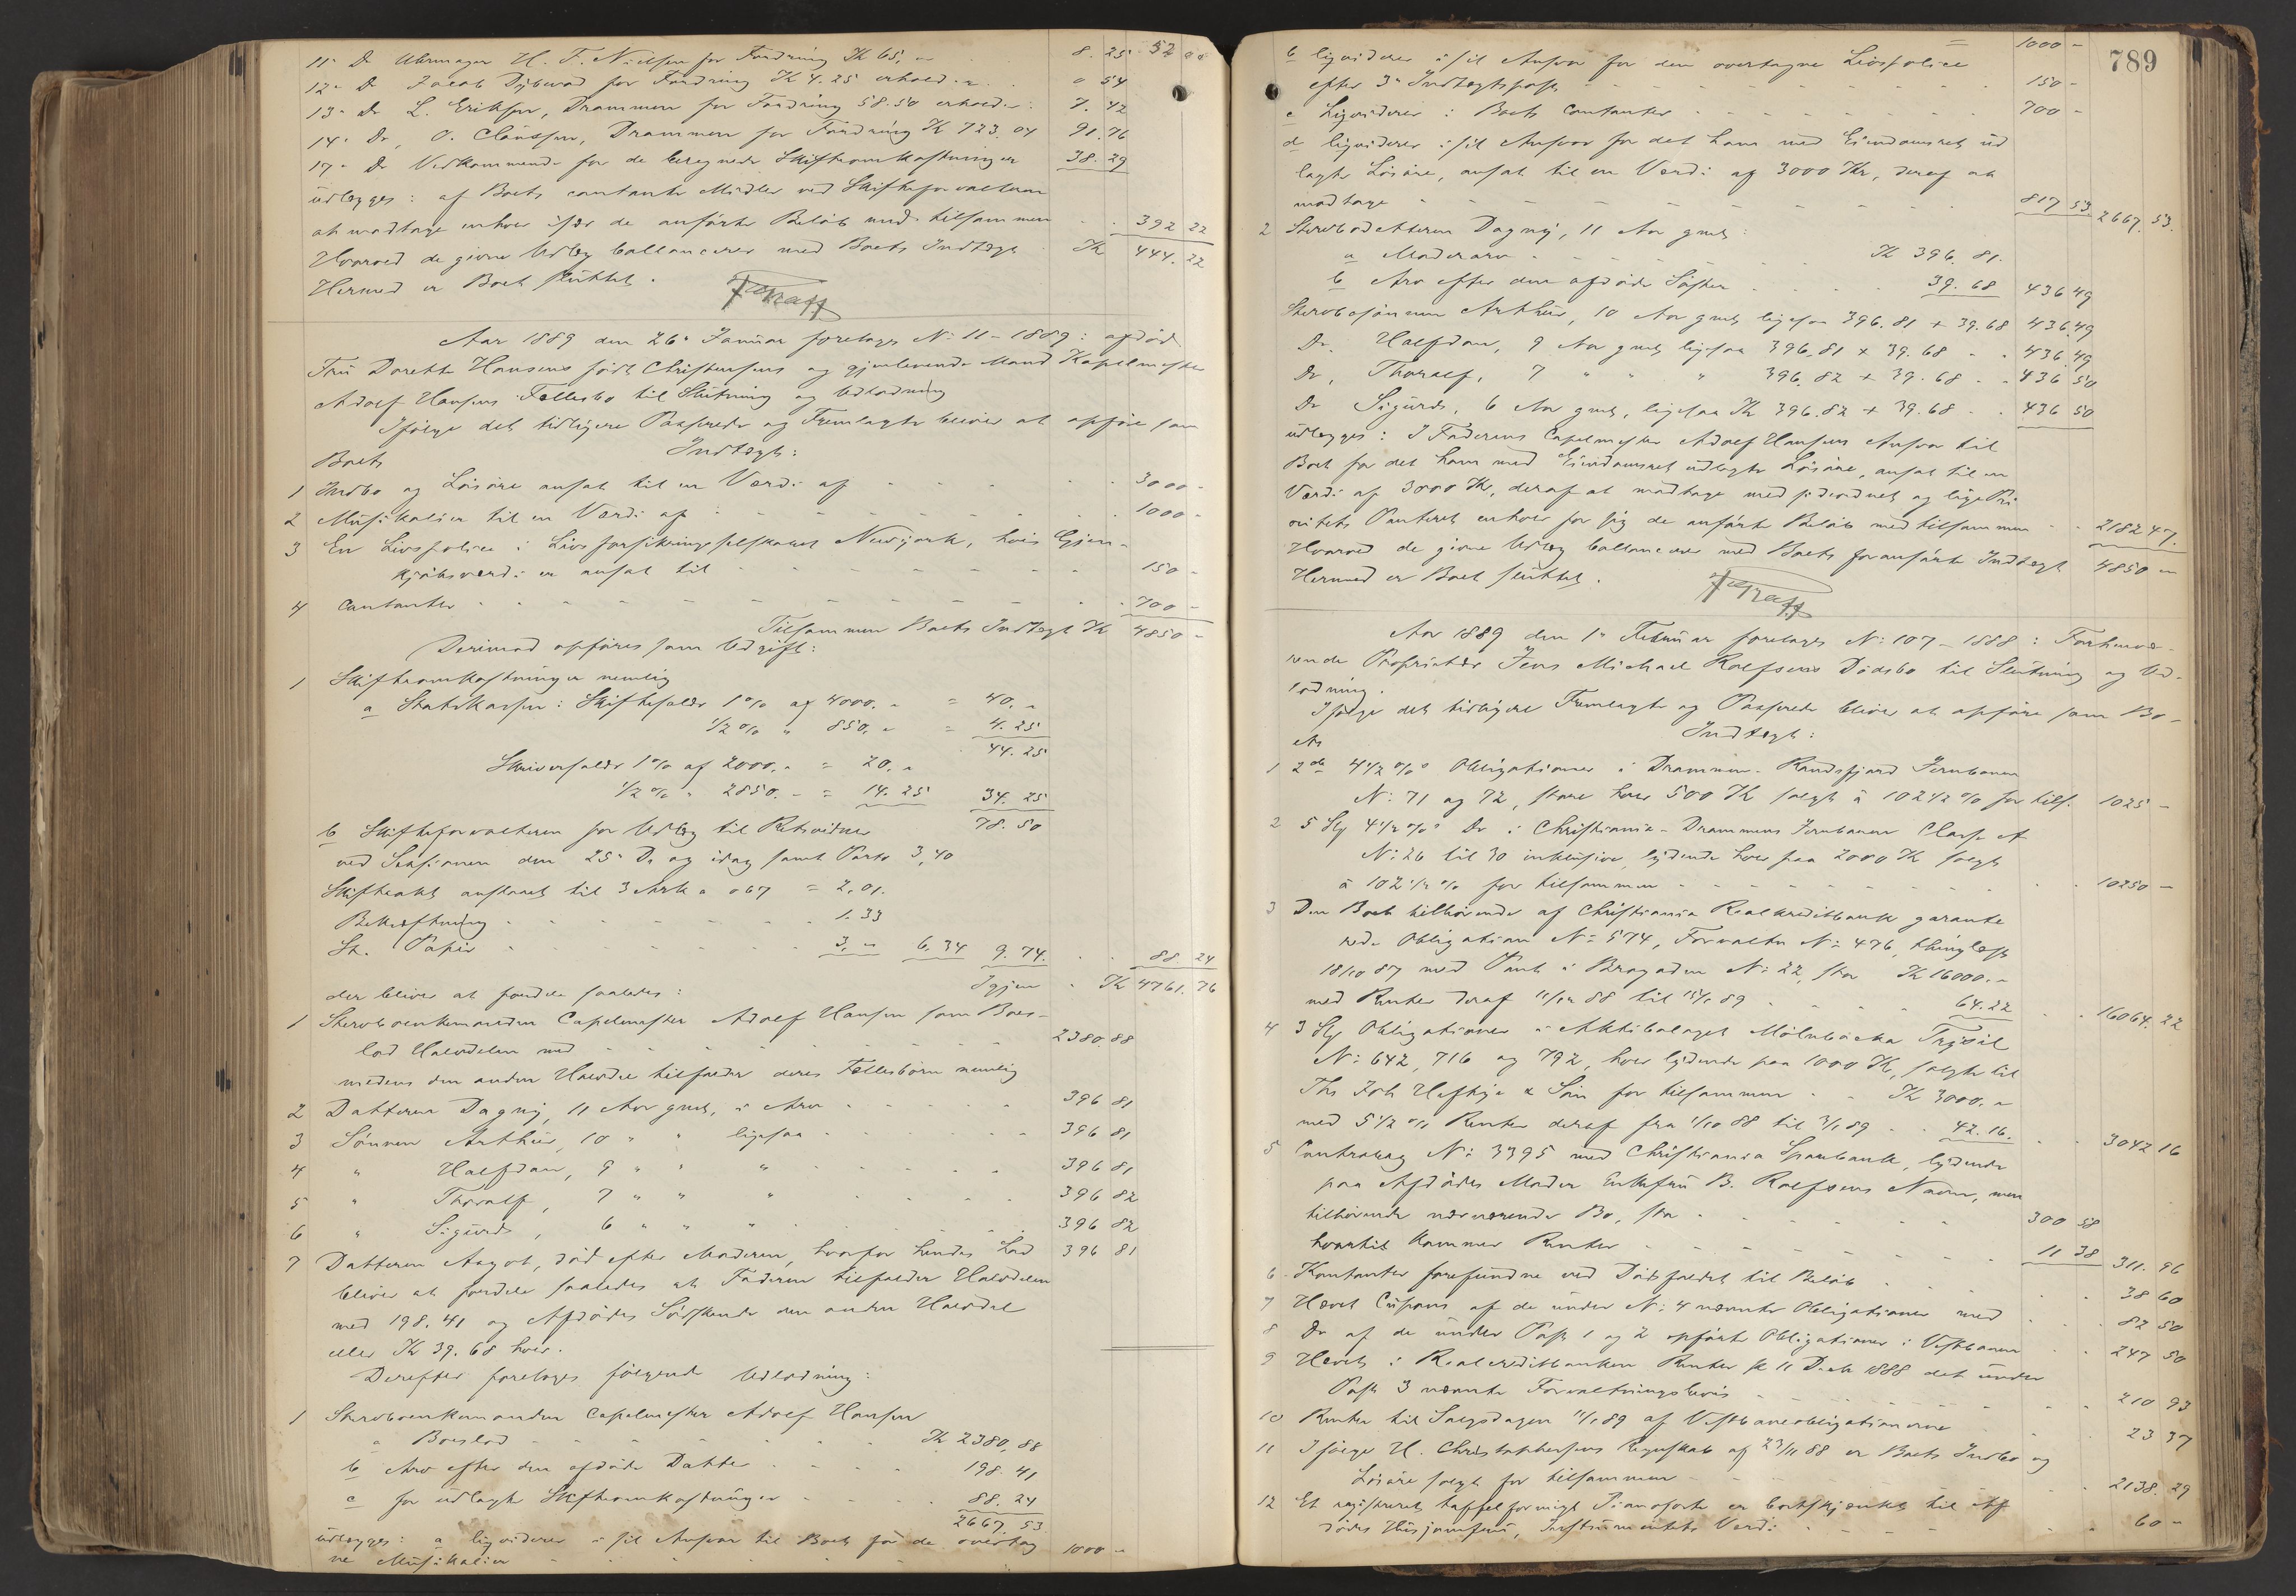 11. Do Uhrmager H. F. Nielsen for Fordring Kr 65, " 8. 25 52 00
12. Do Jacob Dybwad for Fordring Kr 4. 25 erholder 0 54
13. Do L. Eriksen, Drammen for Fordring 58. 50 erholder: 7. 42
14. Do, O. Claussen, Drammen for Fordring Kr 723. 04 91. 76
17. Do Vedkommende for de beregnede Skifteomkostninger 38. 29
udlægges: af Boets contante Midler ved Skifteforvalteren
at modtage enhver især de anførte Beløb med tilsammen 392 22
Hvorved de givne Udlæg ballancerer med Boets Indtægt Kr 444. 22
Hermed er Boet sluttet.
Aar 1889 den 26. Januar foretoges No 11 - 1889: afdød
Fru Dorette Hansens født Christensens og gjenlevende Mand Kapelmester
Adolf Hansens Fællesbo til Slutning og Udlodning
Ifølge det tidligere Passerede og Fremlagte bliver at opføre som
Boets Indtægt:
1 Indbo og Løsøre ansat til en Værdi af 3000 -
2 Musikalier til en Værdi af 1000 -
3 En Livspolice i Livsforsikringsselskabet Newyork, hvis Gjen-
kjøbsværdi er ansat til 150 -
4 Contanter 700 -
Tilsammen Boets Indtægt Kr 4850 -
Derimod opføres som Udgift:
1 Skifteomkostninger nemlig
a Statskassen: Skiftefalder 1% af 4000. " = 40. "
1/2 % " 850. " = 4. 25
44. 25
Skriverfalder 1% af 2000. " = 20. "
1/2 % " 2850. - = 14. 25 34. 25
78. 50
b Skifteforvalteren for Udlæg til Retsvidner
ved Sessionen den 25. Ds og idag samt Porto 3,40
Skifteakt anslaaet til 3 Ark a 067 = 2,01.
Bekræftning 1. 33
St. Papir 3. " 6. 34 9. 74. 88. 24
Igjen Kr 4761. 76
der bliver at fordele saaledes:
1 Stervboenkemanden Capelmester Adolf Hansen som Boes-
lod Halvdelen med 2380. 88
medens den anden Halvdel tilfalder deres Fællesbørn nemlig
2 Datteren Dagny, 11 Aar gml, i Arv 396 81
3 Sønnen Arthur, 10 " " ligesaa 396 81
4 " Halfdan, 9 " " " 396 81
5 " Thoralf, 7 " " " 396 82
6 " Sigurd, 6 " " " 396 82
7 Datteren Aagot, død efter Moderen, hvorfor hendes Lod 396 81
bliver at fordele saaledes at Faderen tilfalder Halvdelen
med 198. 41 og Afdødes Sødskende den anden Halvdel
eller Kr 39. 68 hver.
Derefter foretoges følgende Udlodning:
1 Stervboenkemanden Capelmester Adolf Hansen
a Boeslod Kr 2380, 88
b Arv efter den afdøde Datter 198. 41
c for udlagte Skifteomkostninger 88. 24
2667. 53
udlægges: a liqviderer i sit Ansvar til Boet for de overtag
ne Musikalier 1000 -
789
1000 -
b liqviderer i sit Ansvar for den overtagne Livspolice
efter 3. Indtægtspost 150 -
c Liqviderer i Boets Contanter 700 -
d liqviderer i sit Ansvar for det ham med Eiendomsret ud
lagte Løsøre, ansat til en Værdi af 3000 Kr, deraf at
modtage 817 53. 2667. 53.
2 Stervbodatteren Dagny, 11 Aar gml:
a Moderarv Kr 396. 81.
b Arv efter den afdøde Søster 39. 68 436 49
Stervbosønnen Arthur, 10 Aar gml, ligesaa 396. 81 + 39. 68 436. 49
Do. Halfdan, 9 Aar gml, ligesaa 396. 81 + 39. 68 436. 49
Do, Thoralf, 7 " " " 396. 82 + 39. 68 436 50
Do Sigurd, 6 Aar gml, ligesaa Kr 396. 82 + 39. 68 436 50
udlægges: I Faderens Capelmester Adolf Hansens Ansvar til
Boet for det ham med Eiendomsret udlagte Løsøre, ansat til en
Værdi af 3000 Kr, deraf at modtage med sideordnet og lige Pri
oritets Panteret enhver for sig de anførte Beløb med tilsammen 2182 47.
Hvorved de givne Udlæg ballancerer med Boets foranførte Indtægt 4850 -
Hermed er Boet sluttet.
Aar 1889 den 1. Februar foretoges No: 107 - 1888: Forhenvæ-
rende Proprietær Jens Michael Rolfsens Dødsbo til Slutning og Ud-
lodning.
Ifølge det tidligere Fremlagte og Passerede bliver at opføre som Bo-
ets Indtægt:
1 2de 4 1/2 % Obligationer i Drammen-Randsfjord Jernbanen
No: 71 og 72, store hver 500 Kr solgt à 102 1/2 % for tils. 1025 -
2 5 Stk 4 1/2 % Do i Christiania-Drammens Jernbanen Classe A
No: 26 til 30 inklusive, lydende hver paa 2000 Kr solgt
à 102 1/2 % for tilsammen 10250 -
3 Den Boet tilhørende af Christiania Realkreditbank garante
rede Obligation No 574, Forvaltn No 476, thinglæst
18/10 87 med Pant i Brogaden No: 22, stor Kr 16000. -
med Renter deraf 11/12 88 til 15/1 89 64. 22 16064. 22
4 3 Stk Obligationer i Aktibolaget Mölnbacka Trysil
No: 642, 716 og 792, hver lydende paa 1000 Kr, solgte til
Ths Joh Heftye & Søn for tilsammen Kr 3000. "
med 5 1/2 % Renter deraf fra 1/10 88 til 3/1 89 42. 16. 3042 16
5 Contrabog No: 3395 med Christiania Sparebank, lydende
paa Afdødes Moder Enkefru B. Rolfsens Navn, men
tilhørende nærværende Bo, stor 300 58
hvortil kommer Renter 11 38 311. 96
6 Kontanter forefundne ved Dødsfaldet til Beløb 38 60
7 Hævet Cupons af de under No: 4 nævnte Obligationer med 82 50
8 Do af de under Post 1 og 2 opførte Obligationer i Vestbanen 247 50
9 Hævet i Realcreditbanken Renter pr 11 Decbr 1888 det under
Post 3 nævnte Forvaltningsbevis 210 93
10 Renter til Salgsdagen 11/1 89 af Vestbaneobligationerne 23 37
11 Ifølge H. Christophersens Regnskab af 23/11 88 er Boets Indbo og
Løsøre solgt for tilsammen 2138. 29
12 Et registreret taffelformigt Pianoforte er bortskjænket til Af
dødes Husjomfru, Instrumentets Værdi 60 -